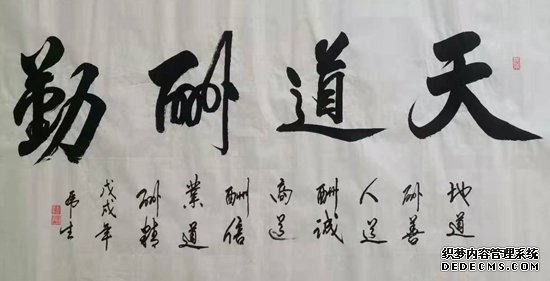 天道酬勤
地道
酬善
人道
酬诚
商道
酬信
業道
酬精
戊戌年
织梦内容管理系统
DEDECMS.COM